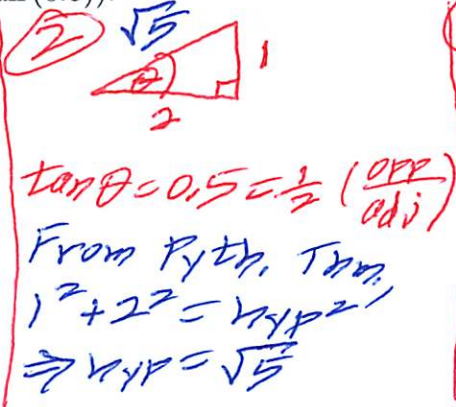 ② √5
θ 1
2
tan θ = 0.5 = 1/2 (opp/adj)
From Pyth. Thm,
1² + 2² = hyp²
⇒ hyp = √5